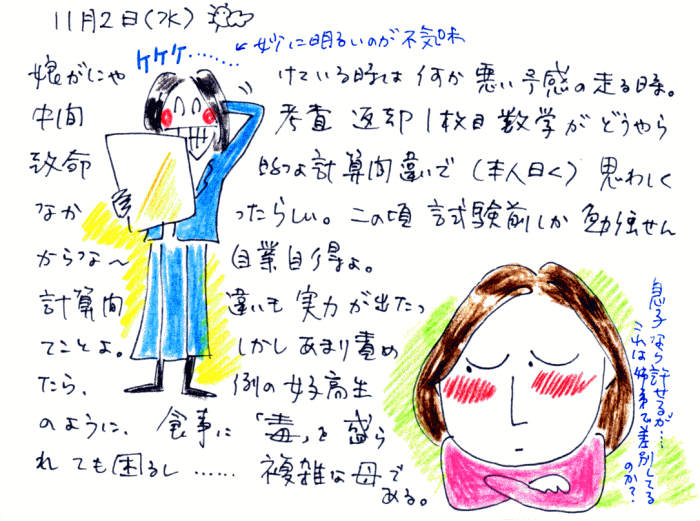 11月2日(水)
ケケケ........
←妙に明るいのが不気味
娘がにゃけている時は何か悪い予感の走る時。
中間考査返却1枚目数学がどうやら
致命的な計算間違いで(本人曰く)思わしく
なかったらしい。この頃試験前しか勉強せん
からな〜自業自得よ。
計算間違いも実力が出たっ
てことよ。しかしあまり責め
たら、例の女子高生
のように、食事に「毒」を盛ら
れても困るし……複雑な母で
ある。
息子なら許せるが…
これは姉弟で差別してる
のか?